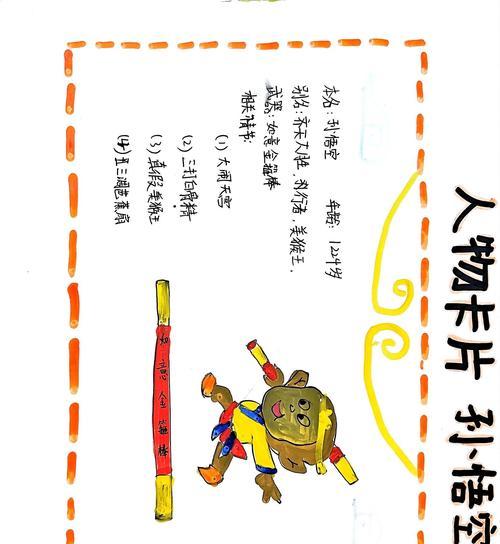 人物卡片 孙悟空
本名:孙悟空 年龄: 1224岁
别名:齐天大胜,孙行者,美猴王.
武器:如意金箍棒
相关情节:
(1) 大闹天宫
(2) 三打白骨精
(3) 真假美猴王
(4) 三调芭蕉扇
如意金箍棒